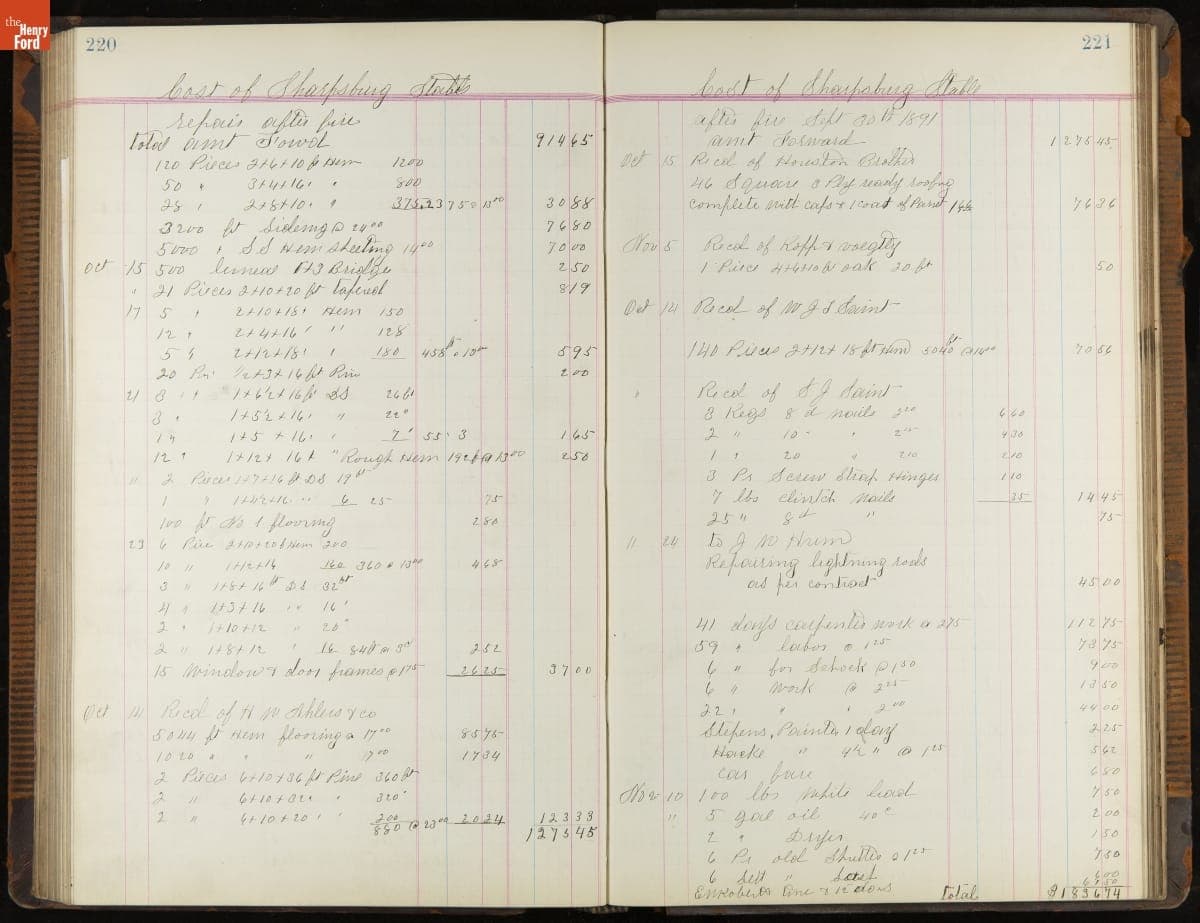 the Henry Ford
220
Cost of Sharpsburg Stable
repair after fire
total amt Fowd 91465
120 Pieces 2+6+10 ft Hem 1200
50 " 3+4+16 " " 800
28 " 2+8+10 " " 375.23 75 @ 13 00 3088
3200 ft Sideing @ 24 00 7680
5000 " S.S Hem Sheeting 14 00 7000
Oct 15 500 lineal 1+3 Bridge 250
" 21 Pieces 2+10+20 ft tapered 819
17 5 " 2+10+18 " Hem 150
12 " 2+4+16 " " 128
5 " 2+12+18 " " 180 458 ft @ 13 00 595
20 Pie 1/2+3+16 ft Pine 200
21 8 " 1+6 1/2+16 ft DS 26 ft
3 " 1+5 1/2+16 " " 22 "
1 " 1+5+16 " " 7 ' 55 " 3 165
12 " 1+12+16 ft " Rough Hem 192 ft @ 13 00 250
" 2 Pieces 1+7+16 ft DS 19 ft
1 " 1+4 1/2+16 " " 6 25 75
100 ft No 1 flooring 280
23 6 Piece 2+10+20 ft Hem 200
10 " 1+12+16 160 360 @ 13 00 468
3 " 1+8+16 ft DS 32 ft
4 " 1+3+16 " " 16 '
2 " 1+10+12 " 20 "
2 " 1+8+12 " 16 84 ft @ 3 ct 252
15 Window & door frames @ 1 75 2625 3700
Oct 14 Recd of H W Ahlers & co
5044 ft Hem flooring @ 17 00 8575
1020 " " " 17 00 1734
2 Pieces 6+10+36 ft Pine 360 ft
2 " 6+10+32 " " 320 "
2 " 6+10+20 " " 200
880 @ 23 00 2024 12333
127545
221
Cost of Sharpsburg Stable
after fire Sept 30th 1891
amt Forward 127545
Oct 15 Recd of Houston Brother
46 Square 3 Ply ready roofing
complete with caps & 1 coat of Paint 1 66 7636
Nov 5 Recd of Kopp & Voegtly
1 Piece 4+6+10 ft oak 20 ft 50
Oct 14 Recd of W J S Saint
140 Pieces 2+12+18 ft Hem 5040 ft @ 14 00 7056
" Recd of S J Saint
3 Kegs 8 d nails 2 20 660
2 " 10 " " 2 15 430
1 " 20 " 210 210
3 Pr Screw Strap Hinges 110
7 lbs clintch nails 35 1445
25 " 8 d " 75
" 24 to J W Hum
Repairing lightning rods
as per contract 4500
41 days carpenter work @ 275 11275
59 " labor @ 1 25 7375
6 " for Schock @ 1 50 900
6 " Work @ 2 25 1350
22 " " " 2 00 4400
Stepens, Painter 1 day 225
Hacke " 4 1/2 " @ 1 25 562
car fare 680
Nov 10 100 lbs White lead 750
" 5 gal oil 40 c 200
2 " Dryer 150
6 Pr old Shutter @ 1 25 750
6 Sett " 600
Total $183674